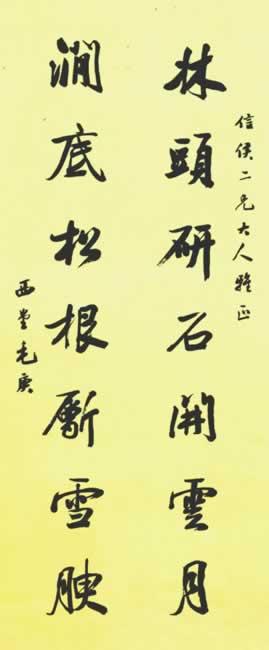 信侯二兄大人雅正
林頭研石開雲月
澗底松根斸雪腴
西堂毛庚